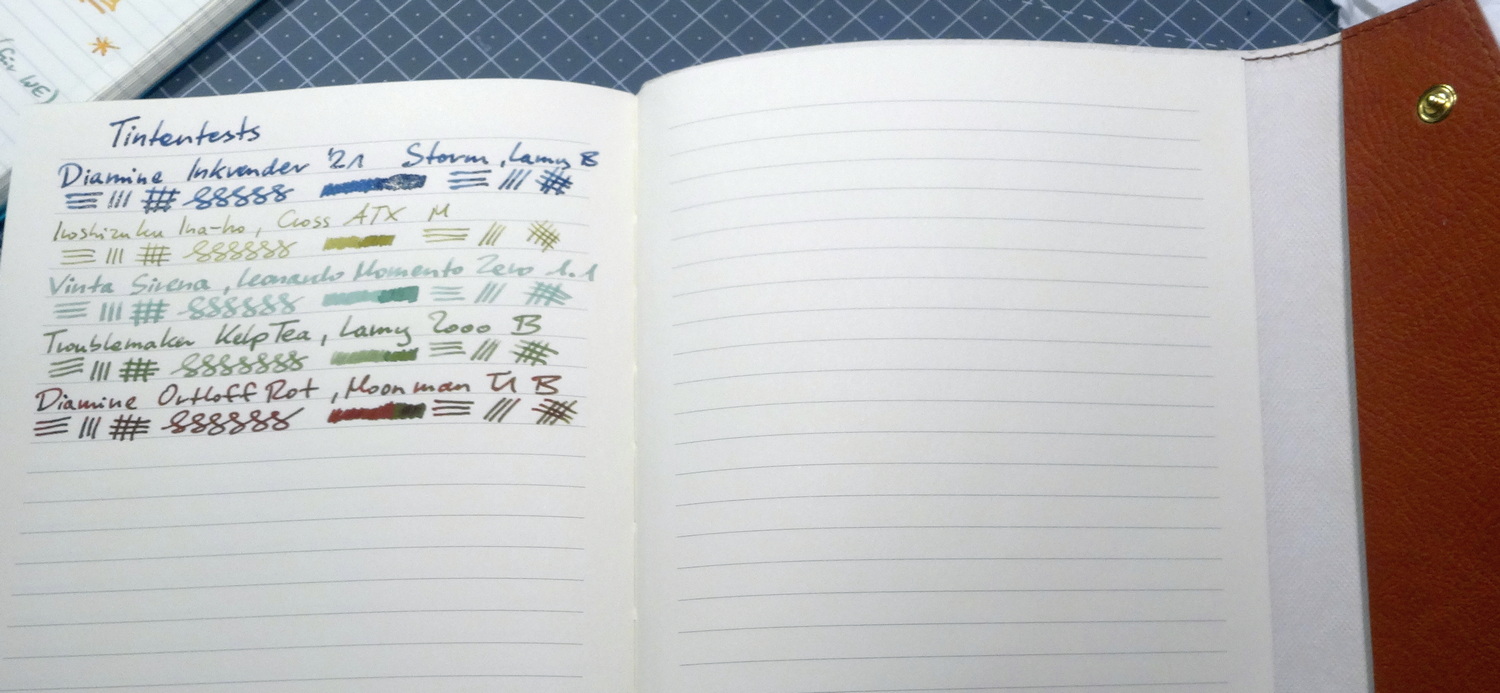 für WE)
Tintentests
Diamine Inkvender '21 Storm, Lamy B
Iroshizuku Ina-ho, Cross ATX M
Vinta Sirena, Leonardo Momento Zero 1.1
Troublemaker Kelp Tea, Lamy 2000 B
Diamine Ortloff Rot, Moonman T1 B